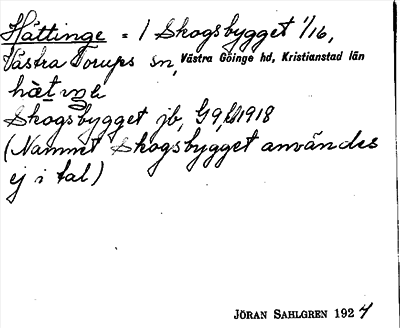 Hättinge = 1 Skogsbygget 1/16,
Västra Torups sn, Västra Göinge hd, Kristianstad län
Skogsbygget jb, G9, 1918
(Namnet Skogsbygget användes
ej i tal)
JÖRAN SAHLGREN 1924